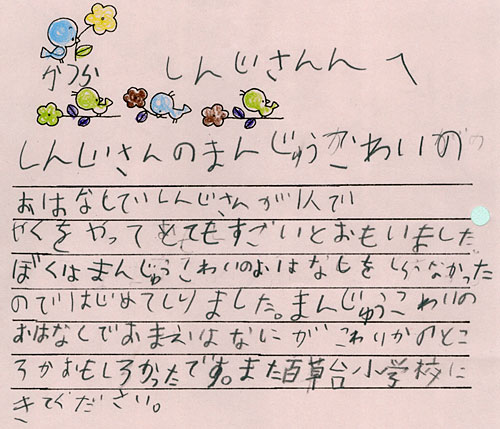 しんじさんん へ
かつら
しんじさんのまんじゅうこわいのの
おはなしでしんじさんが1人で
やくをやってとてもすごいとおもいました
ぼくはまんじゅうこわいのおはなしをしらなかった
のではじめてしりました。まんじゅうこわいの
おはなしでおまえはなにがこわいかのとこ
ろがおもしろかったです。また百草台小学校に
きてください。